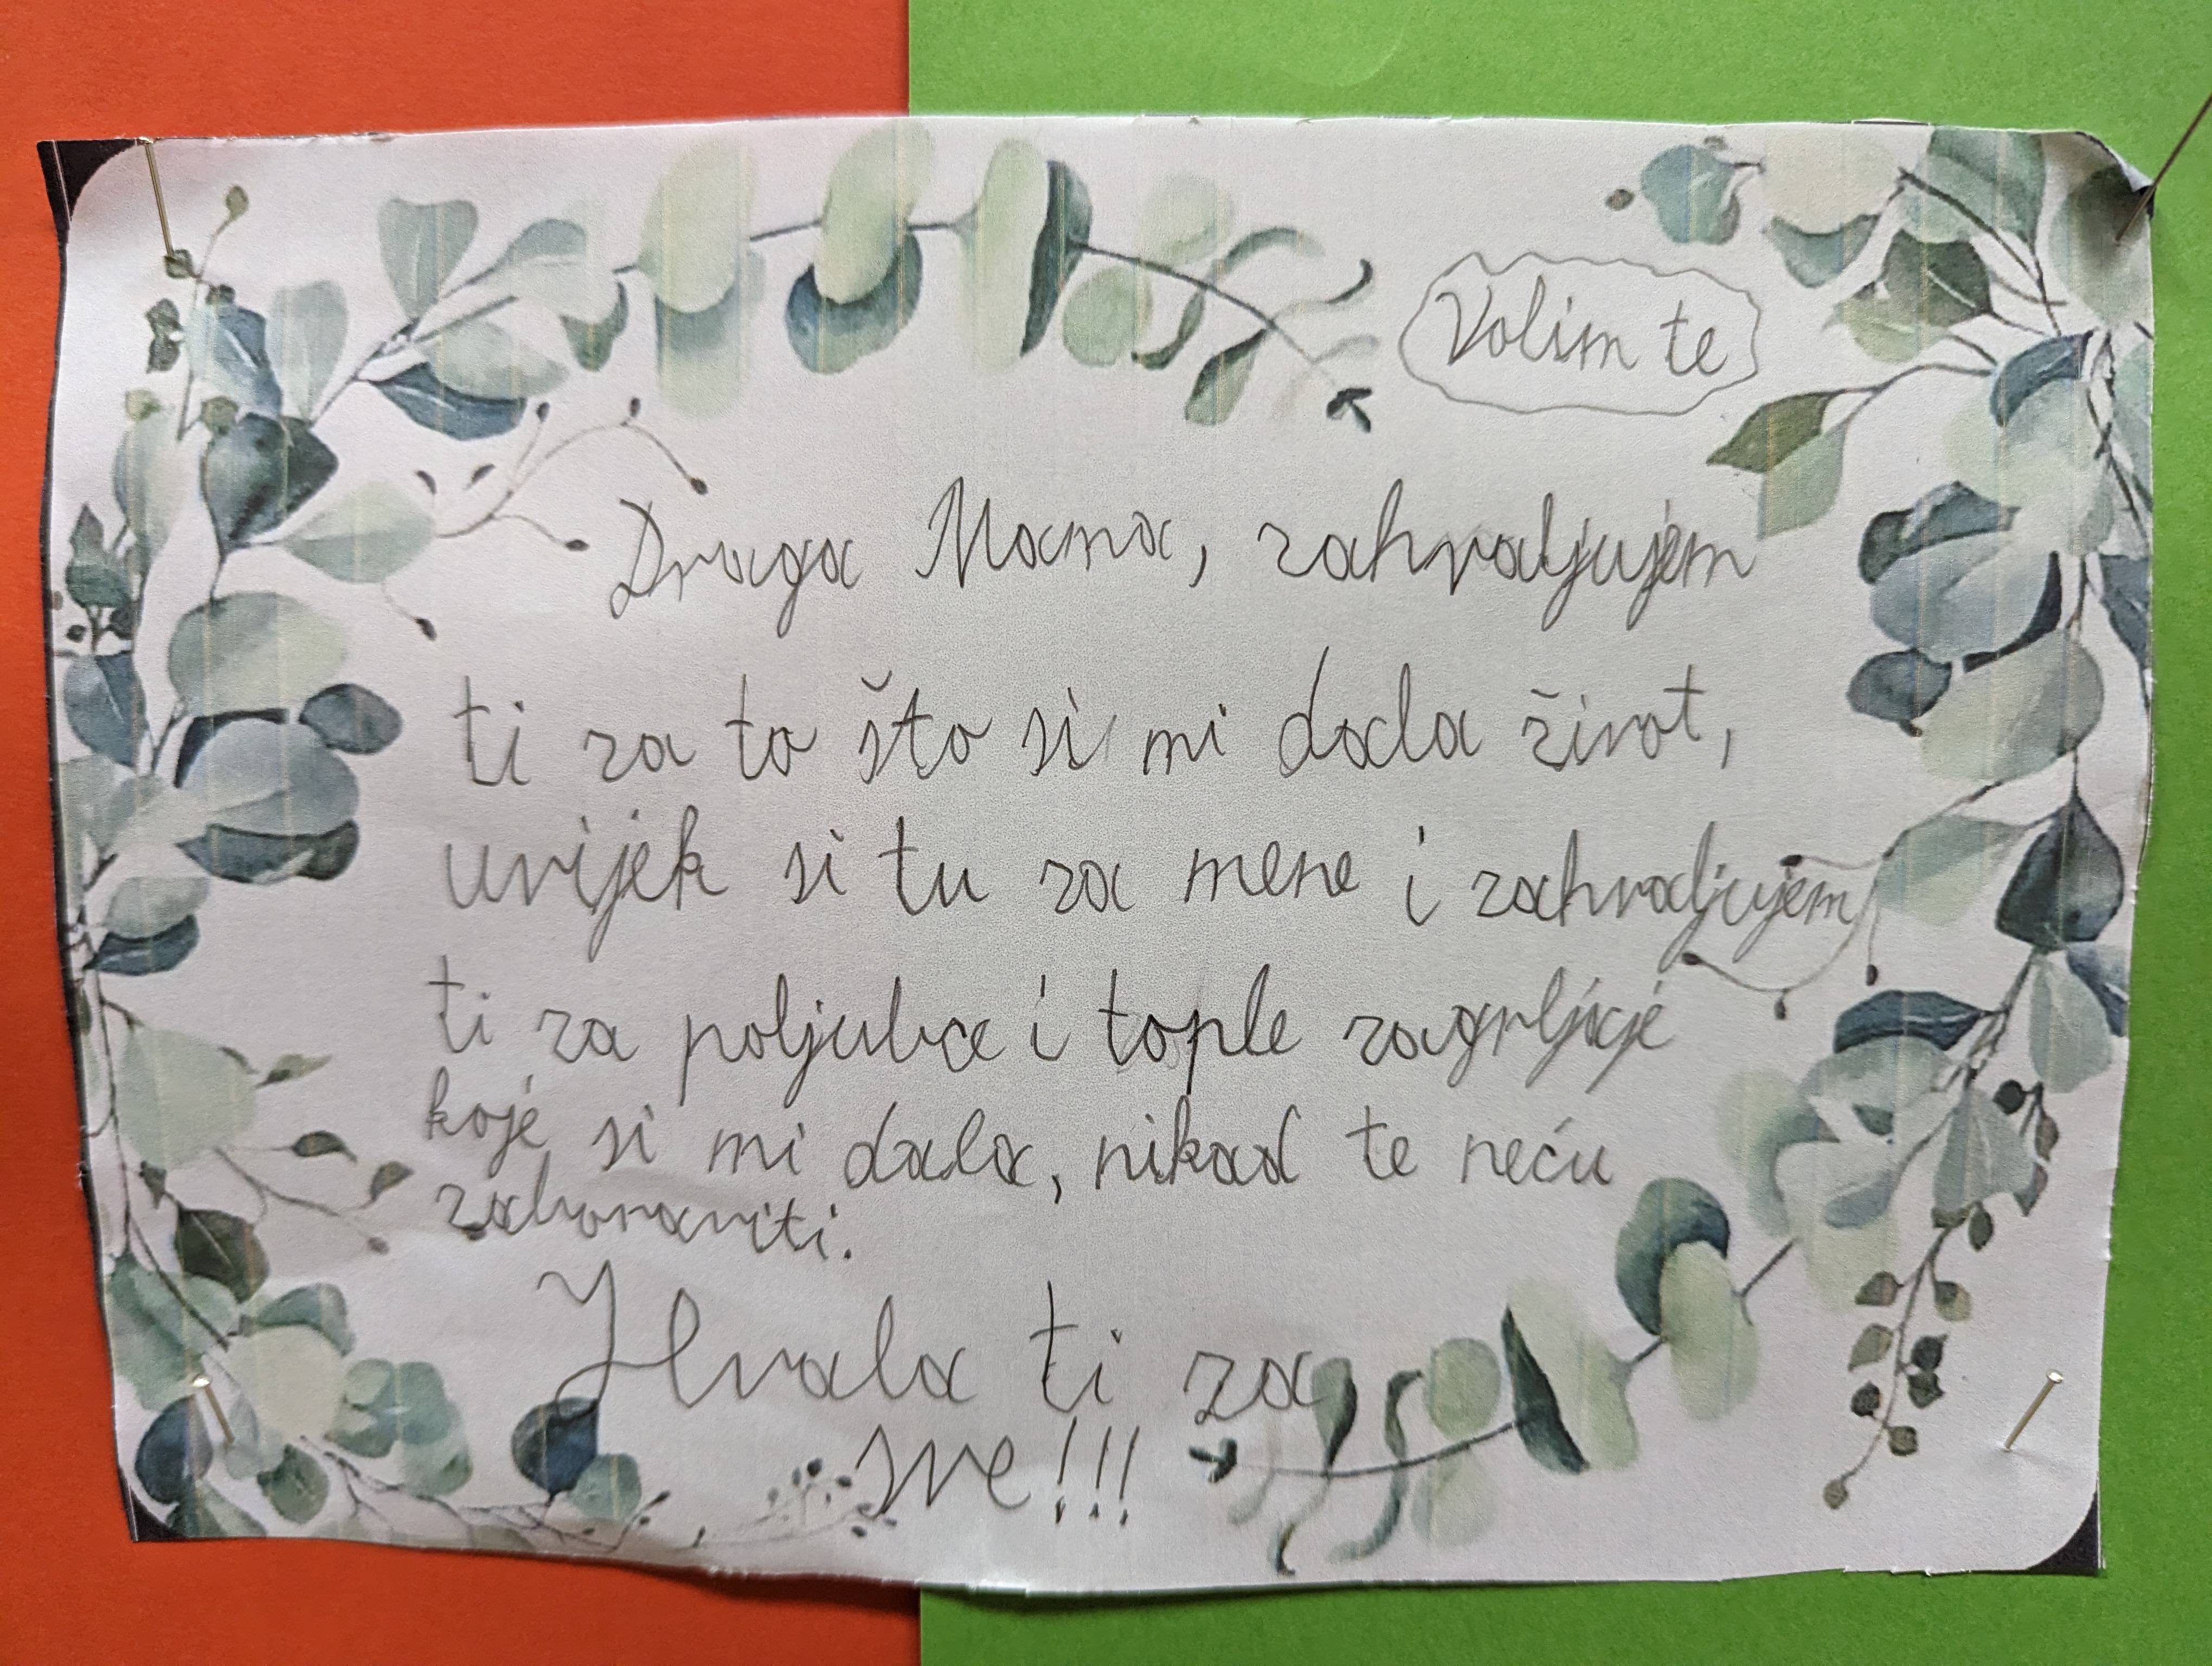 Volim te
Draga Mama, zahvaljujem
ti za to što si mi dala život,
uvijek si tu za mene i zahvaljujem
ti za poljubce i tople zagrljaje
koje si mi dala, nikad te neću
zaboraviti.
Hvala ti za
sve!!!